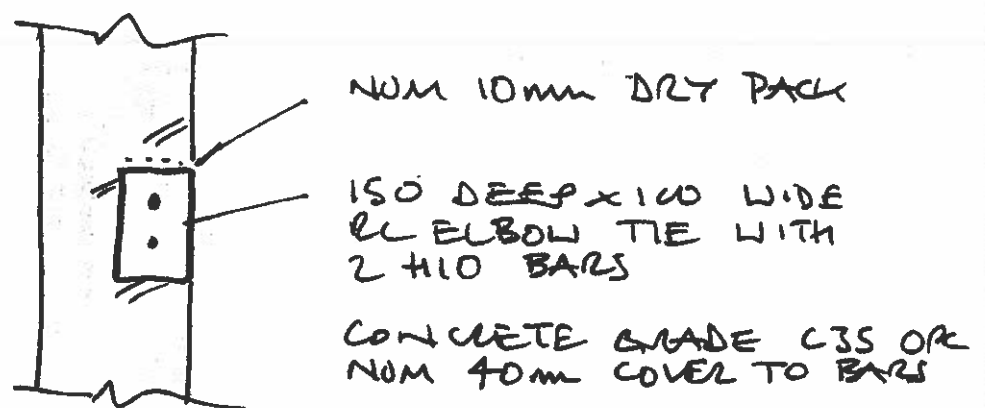 NOM 10mm DRY PACK
150 DEEP x 100 WIDE
RC ELBOW TIE WITH
2 H10 BARS
CONCRETE GRADE C35 OPC
NOM 40m COVER TO BARS